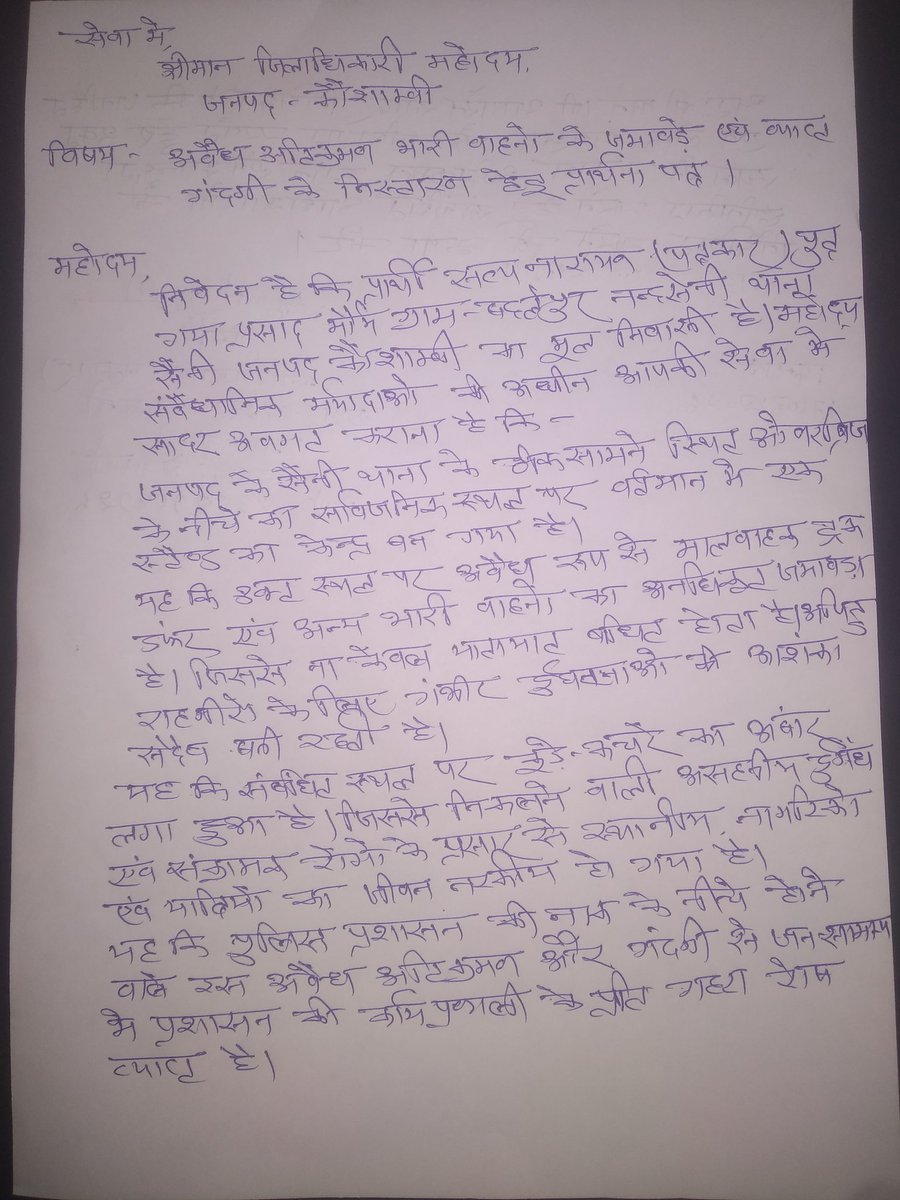 सेवा में,
श्रीमान जिलाधिकारी महोदय,
जनपद - कौशाम्बी
विषय - अवैध अतिक्रमण भारी वाहनो के जमावड़े एवं व्याप्त
गंदगी के निस्तारण हेतु प्रार्थना पत्र ।
महोदय,
निवेदन है कि प्रार्थी सत्य नारायण (पत्रकार) पुत्र
गया प्रसाद मौर्य ग्राम - नन्दसेनी थाना
सैनी जनपद कौशाम्बी का मूल निवासी है। महोदय
संवैधानिक मर्यादाओ के अधीन आपकी सेवा मे
सादर अवगत कराना है कि -
जनपद के सैनी थाना के ठीक सामने स्थित ओवरब्रिज
के नीचे का सार्वजनिक स्थल पर वर्तमान मे एक
स्टैण्ड का केन्द्र बन गया है।
यह कि उक्त स्थल पर अवैध रूप से मालवाहक ट्रक
डंफर एवं अन्य भारी वाहनो का अनधिकृत जमावड़ा
है। जिससे ना केवल यातायात बाधित होता है। अपितु
राहगीरो के लिए गंभीर दुर्घटनाओ की आशंका
सदैव बनी रहती है।
यह कि संबंधित स्थल पर कूड़े-कचरे का अंबार
लगा हुआ है। जिससे निकलने वाली असहनीय दुर्गंध
एवं संक्रामक रोगो के प्रसार से स्थानीय नागरिको
एवं यात्रियो का जीवन नरकीय हो गया है।
यह कि पुलिस प्रशासन की नाक के नीचे होने
वाले इस अवैध अतिक्रमण और गंदगी से जनसामान्य
मे प्रशासन की कार्यप्रणाली के प्रति गहरा रोष
व्याप्त है।